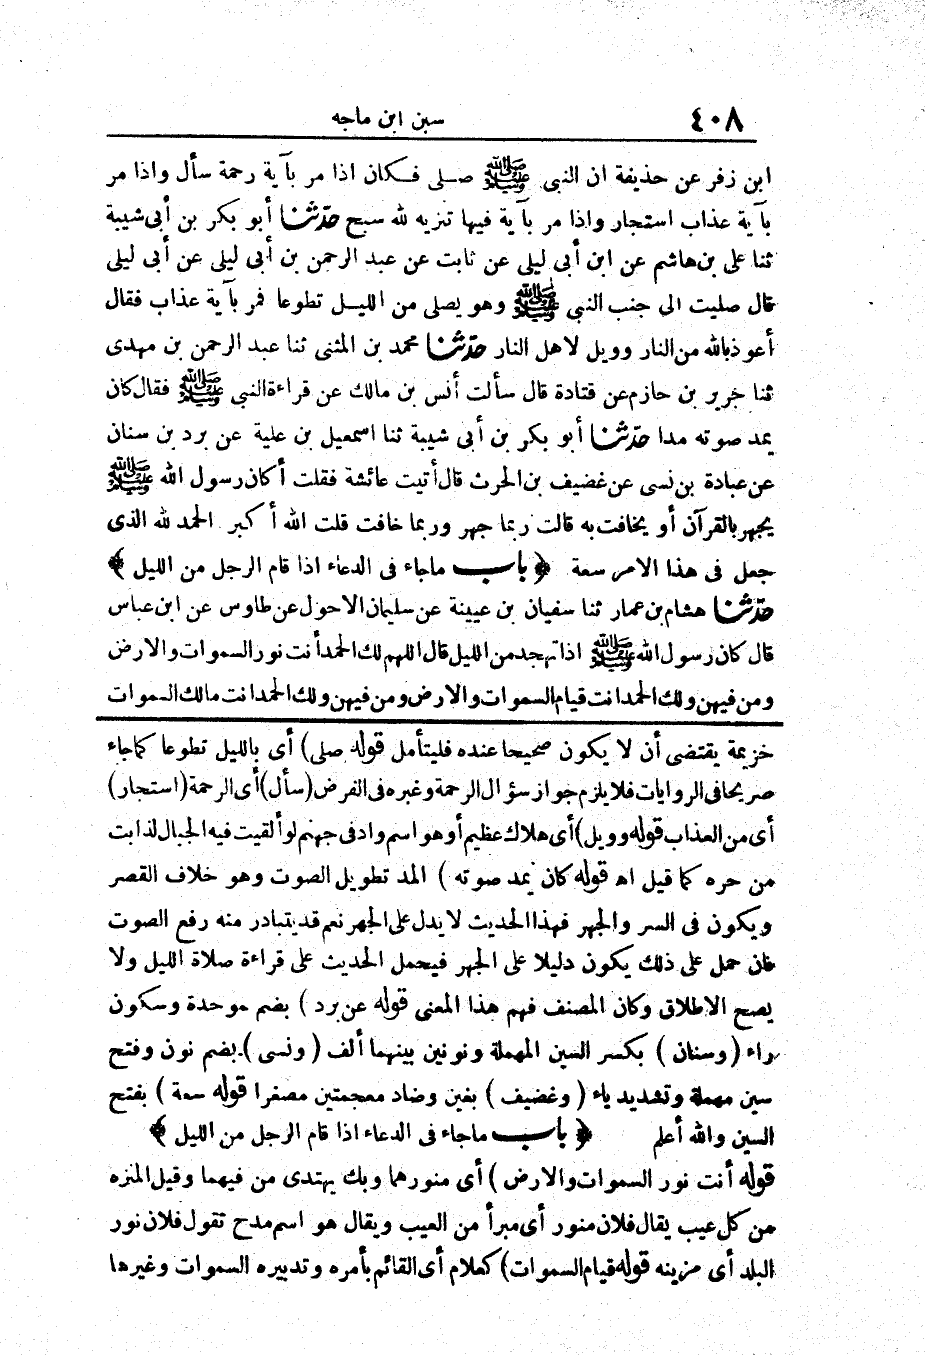 ٤٠٨
سنن ابن ماجه
ابن زفر عن حذيفة ان النبى ﷺ صلى فكان اذا مر بآية رحمة سأل واذا مر
بآية عذاب استجار واذا مر بآية فيها تنزيه لله سبح حدّثنا أبو بكر بن أبى شيبة
ثنا على بن هاشم عن ابن أبى ليلى عن ثابت عن عبد الرحمن بن أبى ليلى عن أبى ليلى
قال صليت الى جنب النبى ﷺ وهو يصلى من الليل تطوعا فمر بآية عذاب فقال
أعوذ بالله من النار وويل لاهل النار حدّثنا محمد بن المثنى ثنا عبد الرحمن بن مهدى
ثنا جرير بن حازم عن قتادة قال سألت أنس بن مالك عن قراءة النبى ﷺ فقال كان
يمد صوته مدا حدّثنا أبو بكر بن أبى شيبة ثنا اسمعيل بن علية عن برد بن سنان
عن عبادة بن نسى عن غضيف بن الحرث قال أتيت عائشة فقلت أكان رسول الله ﷺ
يجهر بالقرآن أو يخافت به قالت ربما جهر وربما خافت قلت الله أكبر الحمد لله الذى
جعل فى هذا الامر سعة ﴿ باب ماجاء فى الدعاء اذا قام الرجل من الليل ﴾
حدّثنا هشام بن عمار ثنا سفيان بن عيينة عن سليمان الاحول عن طاوس عن ابن عباس
قال كان رسول الله ﷺ اذا تهجد من الليل قال اللهم لك الحمد أنت نور السموات والارض
ومن فيهن ولك الحمد انت قيام السموات والارض ومن فيهن ولك الحمد انت مالك السموات
خزيمة يقتضى أن لا يكون صحيحا عنده فليتأمل قوله صلى) أى بالليل تطوعا كما جاء
صريحا فى الروايات فلا يلزم جواز سؤال الرحمة وغيره فى الفرض (سأل) أى الرحمة (استجار)
أى من العذاب قوله وويل) أى هلاك عظيم أو هو اسم واد فى جهنم لو ألقيت فيه الجبال لذابت
من حره كما قيل اه قوله كان يمد صوته ) المد تطويل الصوت وهو خلاف القصر
ويكون فى السر والجهر فهذا الحديث لا يدل على الجهر نعم قد يتبادر منه رفع الصوت
فان حمل على ذلك يكون دليلا على الجهر فيحمل الحديث على قراءة صلاة الليل ولا
يصح الاطلاق وكان المصنف فهم هذا المعنى قوله عن برد ) بضم موحدة وسكون
راء ( وسنان ) بكسر السين المهملة ونونين بينهما ألف ( ونسى ) بضم نون وفتح
سين مهملة وتشديد ياء ( وغضيف ) بغين وضاد معجمتين مصغرا قوله سعة ) بفتح
السين والله أعلم ﴿ باب ماجاء فى الدعاء اذا قام الرجل من الليل ﴾
قوله أنت نور السموات والارض ) أى منورهما وبك يهتدى من فيهما وقيل المنزه
من كل عيب يقال فلان منور أى مبرأ من العيب ويقال هو اسم مدح تقول فلان نور
البلد أى مزينه قوله قيام السموات) كعلام أى القائم بأمره وتدبيره السموات وغيرها